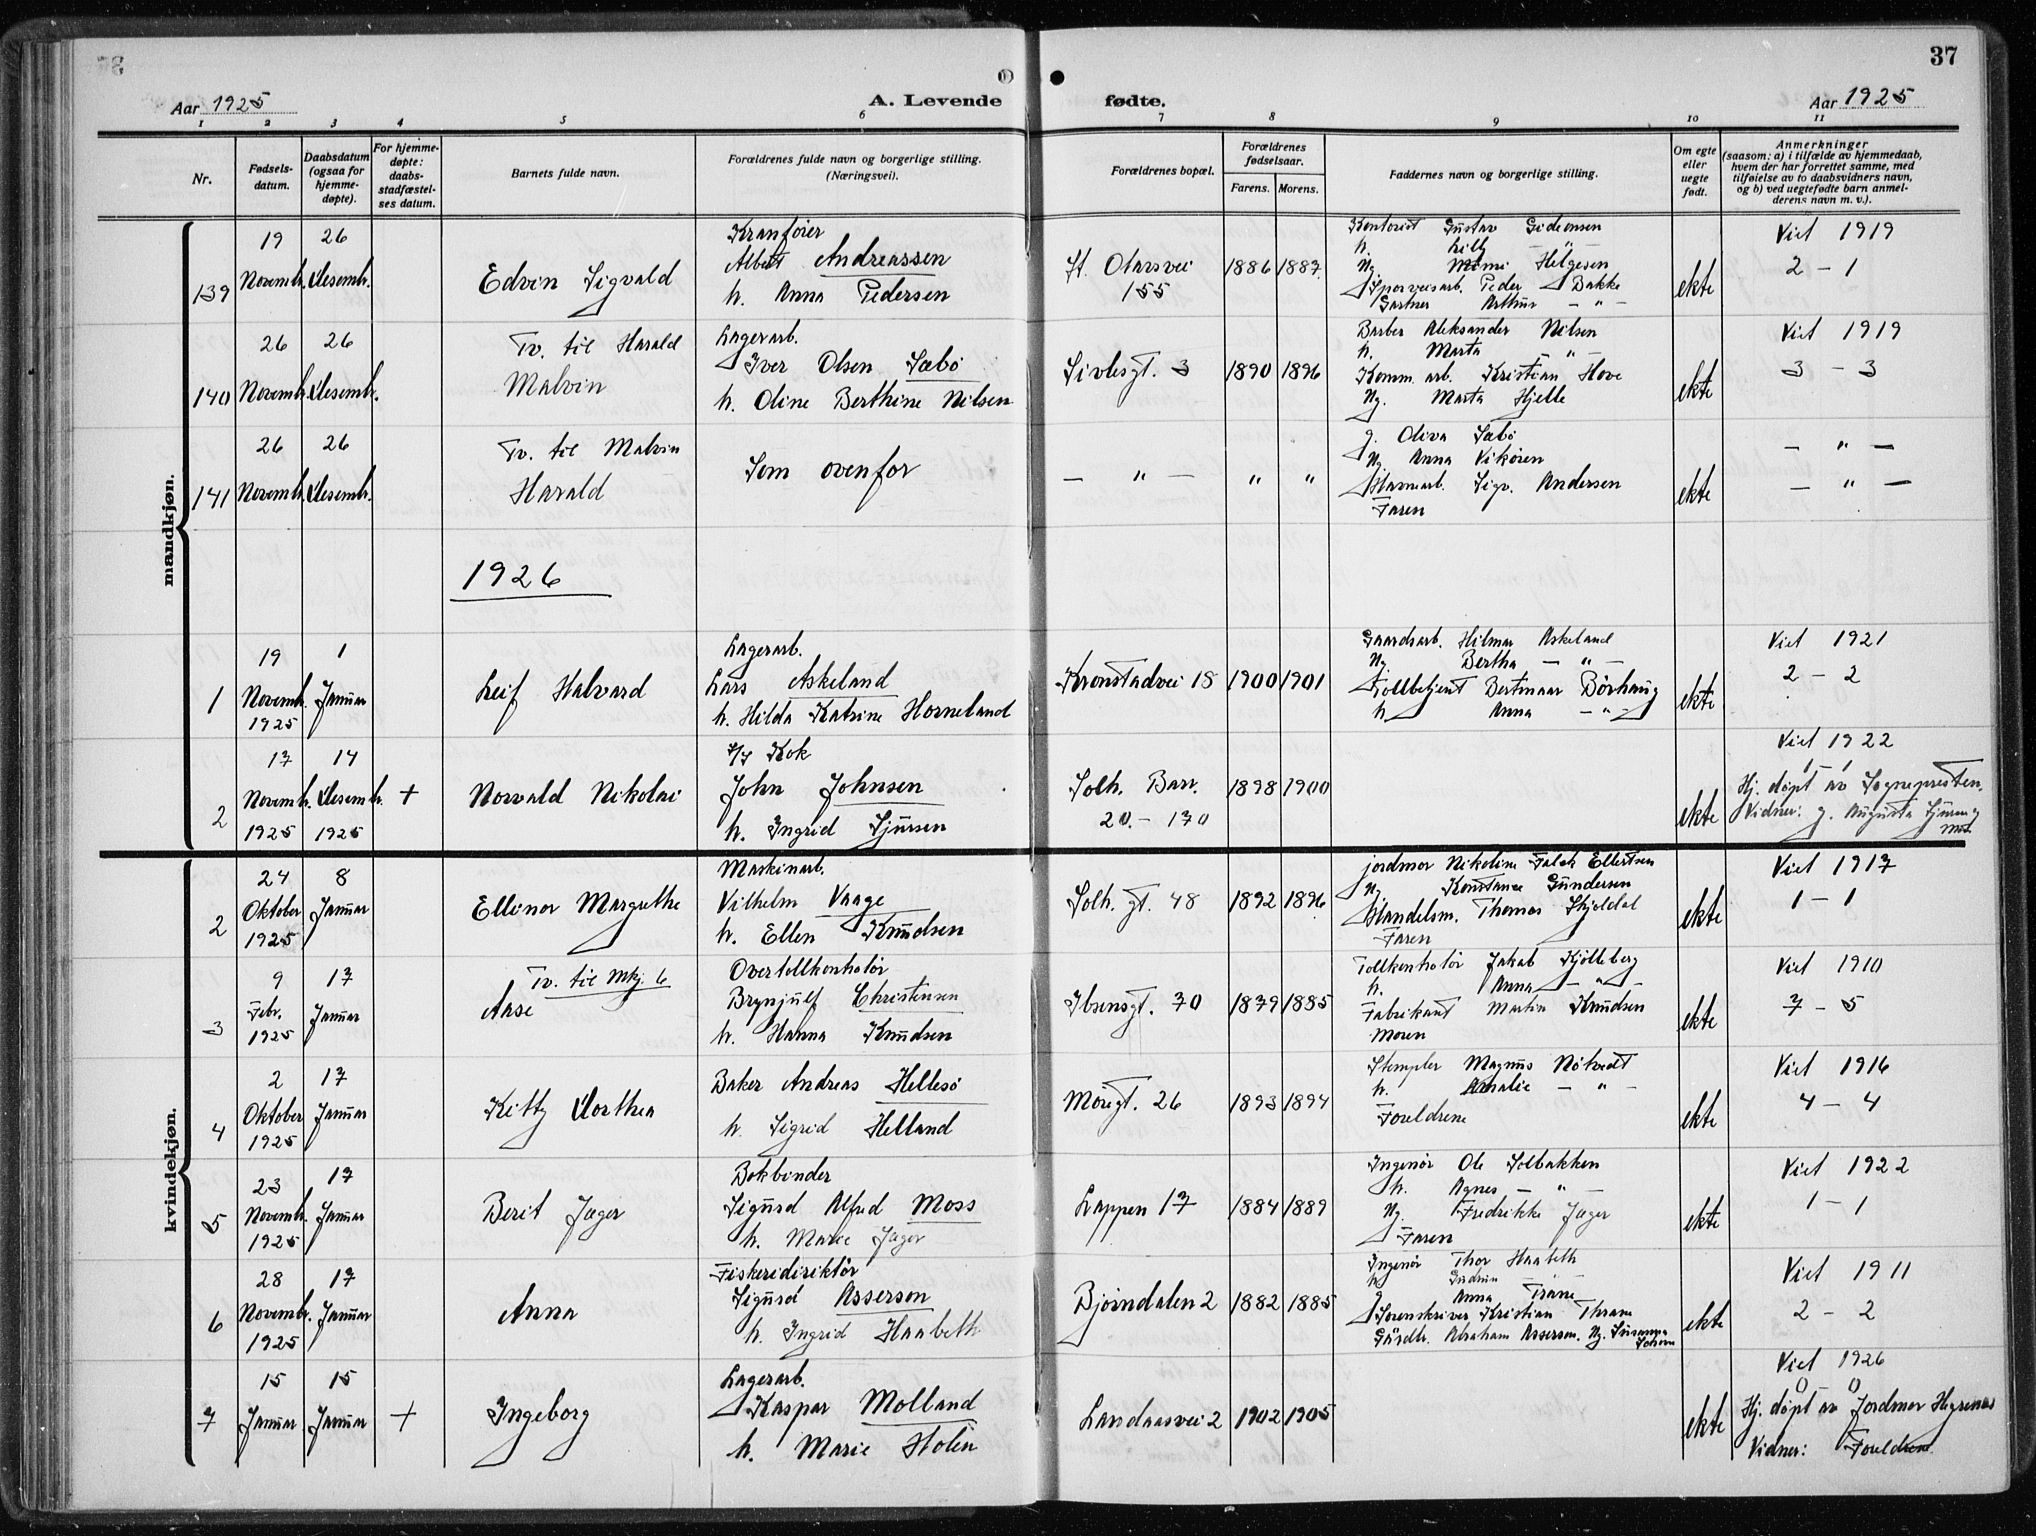 37
Aar 1925
A. Levende fødte.
Aar 1925
1 2 3 4 5 6 7 8 9 10 11
Nr.
Fødsels-
datum.
Daabsdatum
(ogsaa for
hjemme-
døpte).
For hjemme-
døpte:
daabs-
stadfæstel-
ses datum.
Barnets fulde navn.
Forældrenes fulde navn og borgerlige stilling.
(Næringsvei).
Forældrenes bopæl.
Forældrenes
fødselsaar.
Farens. Morens.
Faddernes navn og borgerlige stilling.
Om egte
eller
uegte
født.
Anmerkninger
(saasom: a) i tilfælde av hjemmedaab,
hvem der har forrettet samme, med
tilføielse av to daabsvidners navn,
og b) ved uegtefødte barn anmel-
derens navn m. v.).
mandkjøn.
139
19
Novembr.
26
Desembr.
Edvin Sigvald
Kranfører
Albert Andreassen
h. Anna Pedersen
St. Olavsvei
155
1886 1887
Kontorist Gustav Gideonsen
h. Lilly — " —
Ug. Mimi Helgesen
Sporveisarb. Peder Bakke
Gartner Arthur — " —
ekte
Viet 1919
2 – 1
140
26
Novembr.
26
Desembr.
Tv. til Harald
Malvin
Lagerarb.
Iver Olsen Sæbö
h. Oline Berthine Nilsen
Sivlesgt. 3
1890 1896
Barber Aleksander Nilsen
h. Marta — " —
Komm. arb. Kristian Hove
Ug. Marta Hjelle
ekte
Viet 1919
3 – 3
141
26
Novembr.
26
Desembr.
Tv. til Malvin
Harald
Som ovenfor
— " —
" "
g. Oliva Sæbö
Ug. Anna Vikören
Havnearb. Sigv. Andersen
Faren
ekte
— " —
— " —
1926
1
19
Novembr.
1925
1
Januar
Leif Halvard
Lagerarb.
Lars Askeland
h. Hilda Katrine Horneland
Kronstadvei 18
1900 1901
Gaardsarb. Hilmar Askeland
Ug. Bertha — " —
Tollbetjent Bertmaar Börhaug
h. Anna — " —
ekte
Viet 1921
2 – 2
2
17
Novembr.
1925
14
Desembr.
1925
+
Norvald Nikolai
Kok
John Johnsen
h. Ingrid Sjursen
Solh. Barr.
20. – 170
1898 1900
ekte
Viet 1922
Hj. døpt av Sognepresten.
Vidner: g. Augusta
kvindekjøn.
2
24
Oktober
1925
8
Januar
Ellinor Margrethe
Maskinarb.
Vilhelm Vaage
h. Ellen Knudsen
Solh. gt. 48
1892 1896
jordmor Nikoline Falck Ellertsen
Ug. Konstanse Gundersen
Handelsm. Thomas Skjoldal
Faren
ekte
Viet 1917
1 – 1
3
9
Febr.
1925
17
Januar
Tv. til Mkj. 6
Aase
Overtollkontrolør
Brynjulf Christensen
h. Hanna Knudsen
Ibsensgt. 70
1879 1885
Tollkontrolør Jakob Kjölleberg
h. Anna — " —
Fabrikant Martin Knudsen
Moren
ekte
Viet 1910
7 – 5
4
2
Oktober
1925
17
Januar
Kitty Dorthea
Baker Andreas Hellesö
h. Sigrid Helland
Möregt. 26
1893 1894
Stempler Magnus Nötvedt
h. Amalie — " —
Foreldrene
ekte
Viet 1916
4 – 4
5
23
Novembr.
1925
17
Januar
Berit Jæger
Bokbinder
Sigurd Alfred Moss
h. Marie Jæger
Lappen 17
1884 1889
Ingeniør Ole Solbakken
h. Agnes — " —
Ug. Fredrikke Jæger
Faren
ekte
Viet 1922
1 – 1
6
28
Novembr.
1925
17
Januar
Anna
Fiskeridirektör
Sigurd Asserson
h. Ingrid Haabeth
Bjørndalen 2
1882 1885
Ingeniør Thor Haabeth
h. Gudrun
g. Anna Trane
Sorenskriver Kristian Thrane
Gårdbr. Abraham Asserson. Ug. Susanna
ekte
Viet 1911
2 – 2
7
15
Januar
15
Januar
+
Ingeborg
Lagerarb.
Kaspar Molland
h. Marie Holen
Landaasvei 2
1902 1905
ekte
Viet 1926
0 0
Hj. døpt av Jordmor Hegrenæs
Vidner: Foreldrene